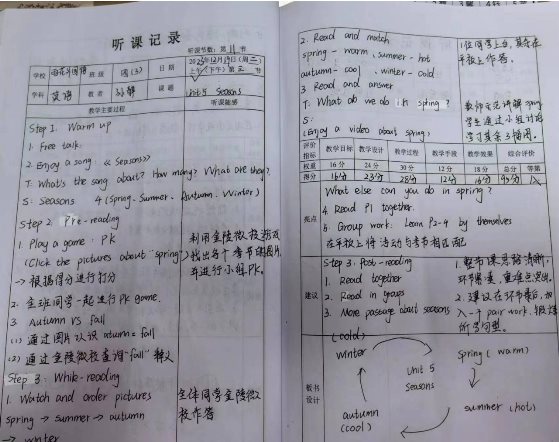 听课记录
听课节数：第 11 节
学校
班级 四(3)
日期
2023年12月19日(周二)
上午(下午)第二节
学科 英语
教者
课题 Unit 5 Seasons
教学主要过程
听课随感
Step 1. Warm up
1. Free talk.
2. Enjoy a song: 《Seasons》
T: What's the song about? How many? What are they?
S: Seasons 4 (Spring, Summer, Autumn, Winter)
Step 2: Pre-reading
1. Play a game: PK
(Click the pictures about "spring")
→ 根据得分进行打分
利用金陵微校游戏
找出各个季节的图片
并进行小组PK.
2. 全班同学一起进行PK game.
3. Autumn VS fall
(1) 通过图片认识 autumn = fall
(2) 通过金陵微校查询"fall" 释义
Step 3: While-reading
1. Watch and order pictures
spring → summer → autumn
→ winter
全体同学金陵微
校作答
2. Read and match
spring - warm, summer - hot
autumn - cool, winter - cold
3. Read and answer
T: What do we do in spring?
S:
(Enjoy a video about spring)
1位同学上台，其余在
平板上作答.
教师示范讲解 spring
学生通过小组讨论
学习其余3幅图.
评价指标 教学目标 教学设计 教学过程 教学手段 教学效果 综合评价
权重 16分 24分 30分 12分 18分 总分 等第
得分 16分 23分 28分 12分 16分 95分 A
亮点
What else can you do in spring?
4. Read P1 together
5. Group work: Learn P2-4 by themselves
在平板上将活动与季节相匹配
建议
Step 3. Post-reading
1. Read together
2. Read in groups
3. More passage about seasons
1. 整节课思路清晰，
环节紧凑，重难点突出.
2. 建议在环节最后，加
入一个 pair work,
所学句型.
板书设计
(cold)
winter
spring (warm)
Unit 5
Seasons
autumn
(cool)
summer (hot)